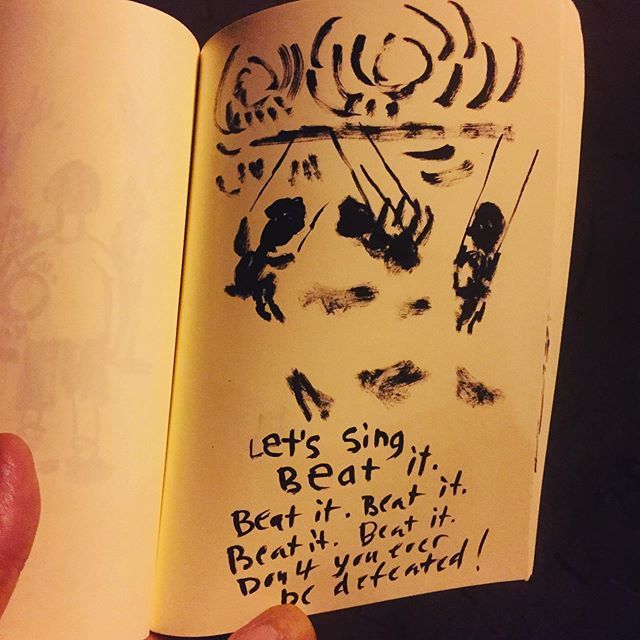 Let's Sing
Beat it.
Beat it. Beat it.
Beat it. Beat it.
Don't you ever
be defeated!